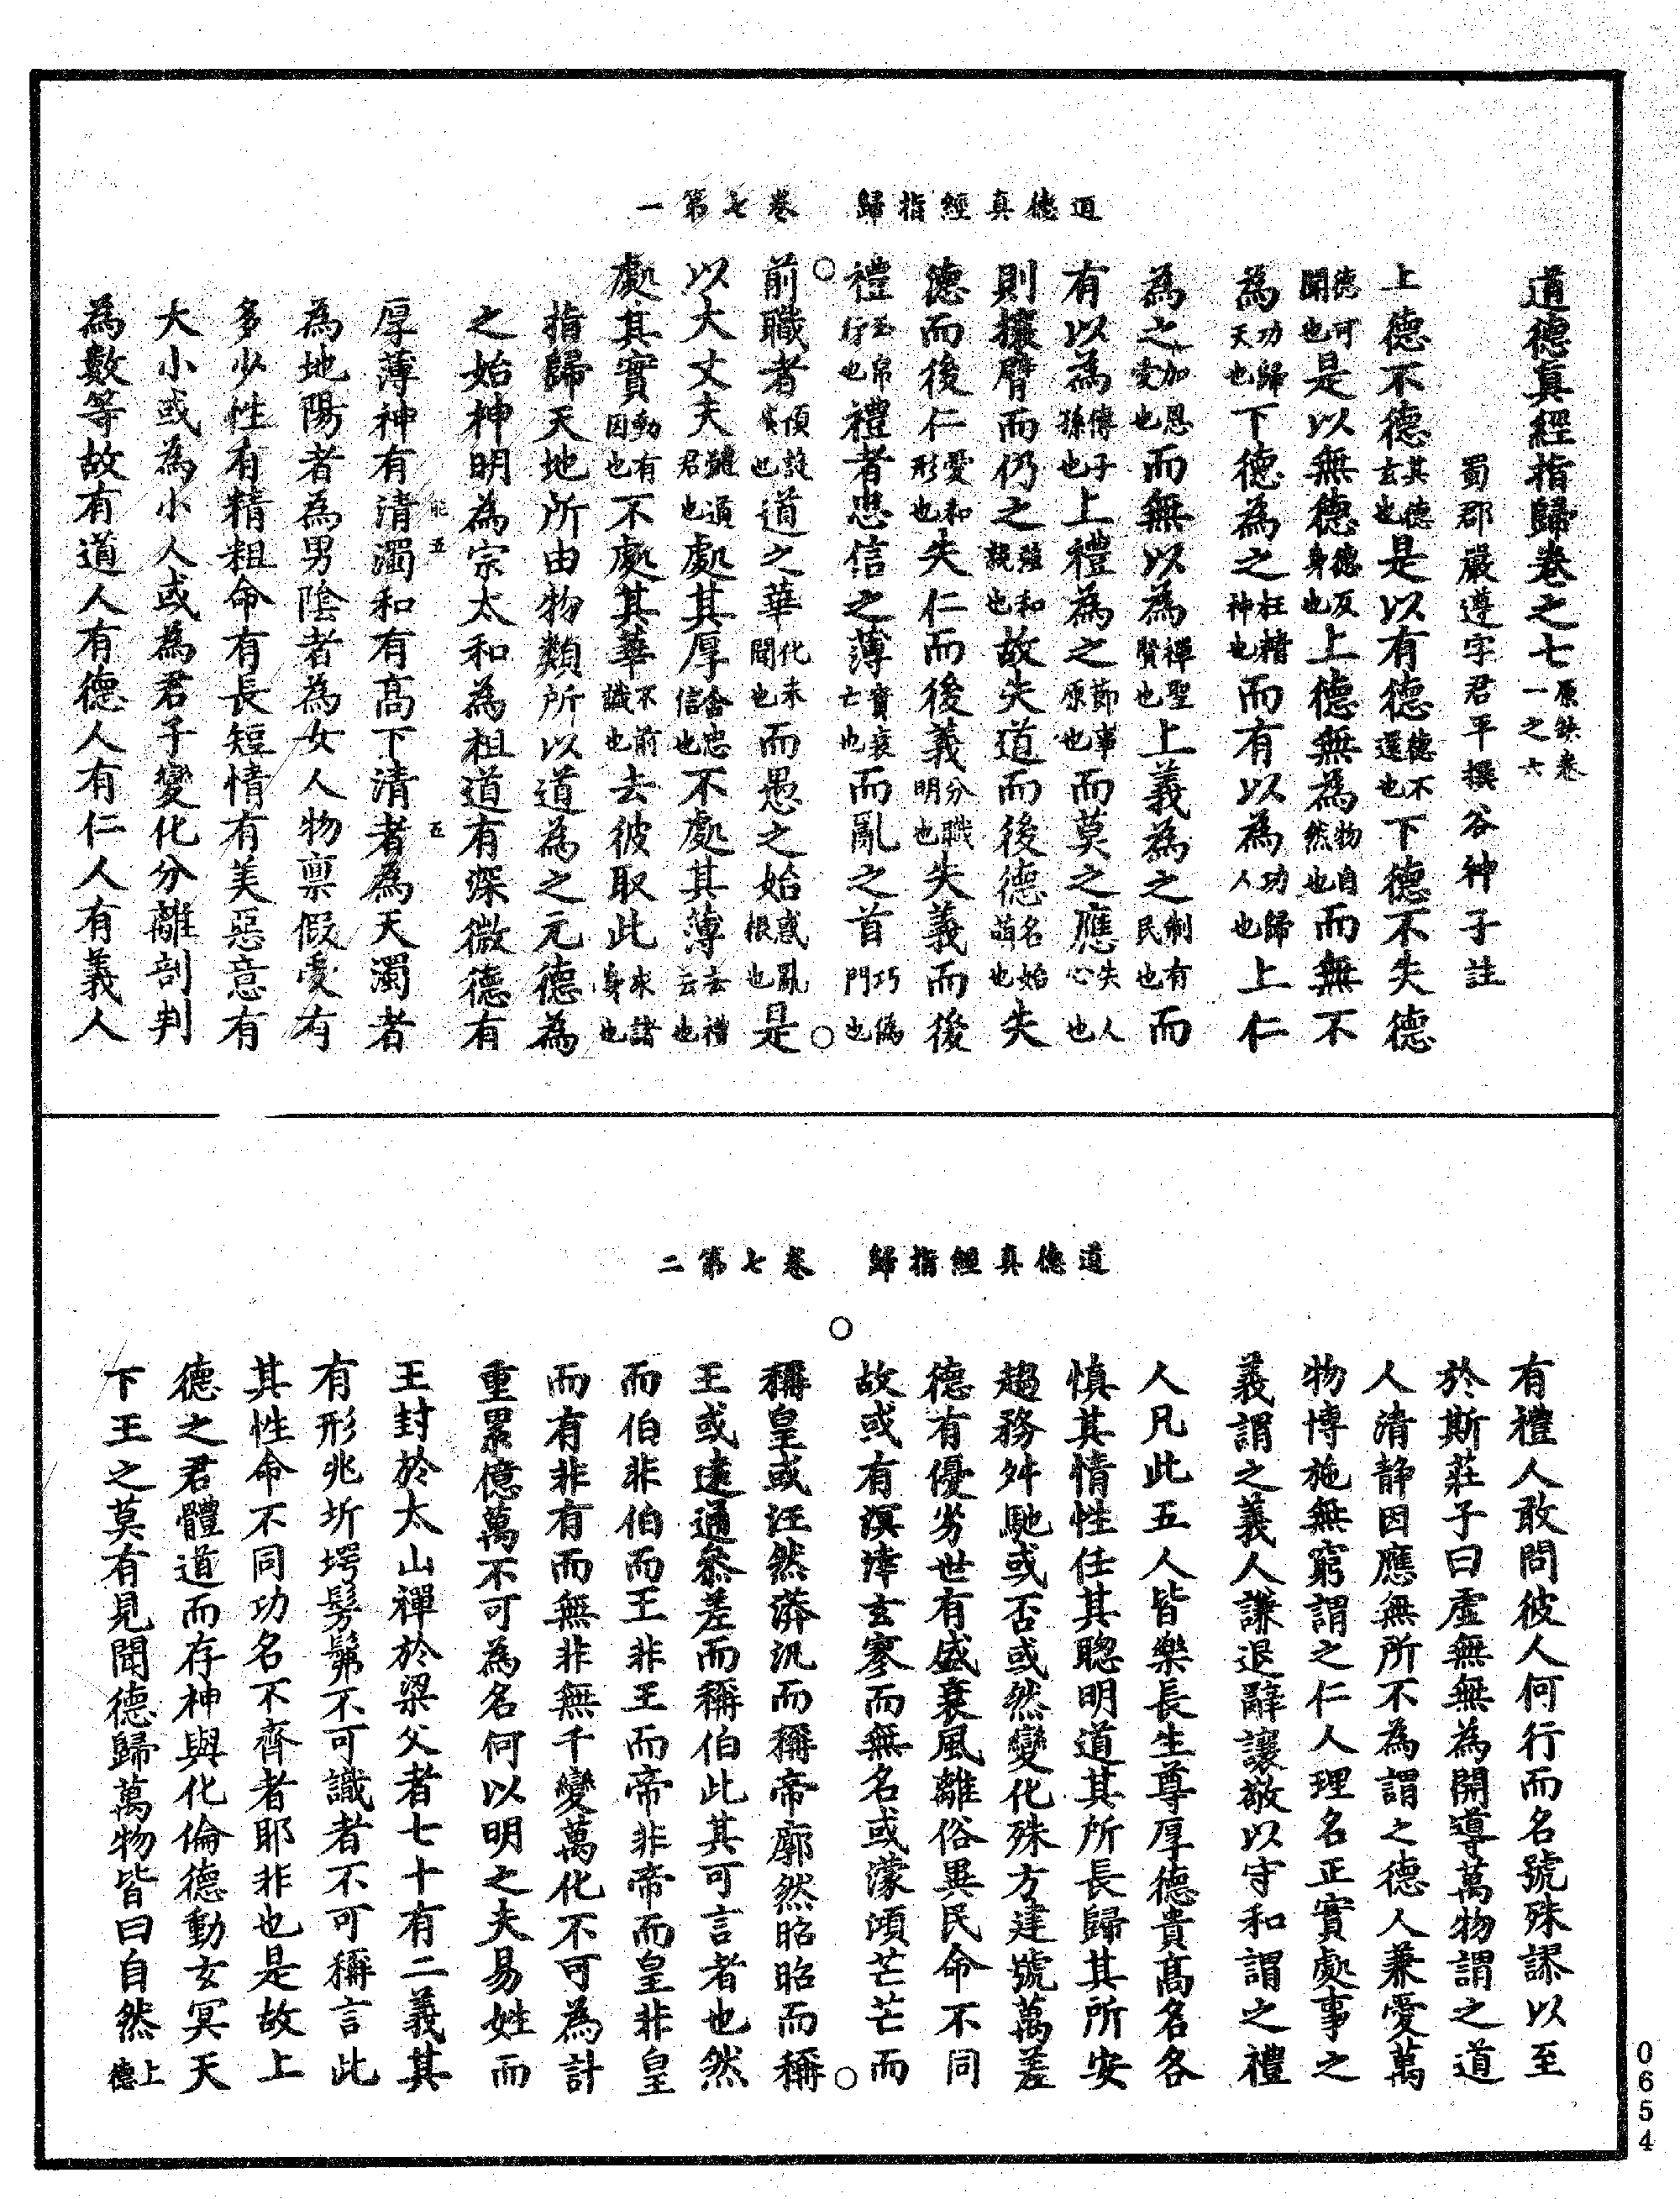 道德真經指歸　卷七第一
道德真經指歸卷之七原缺卷一之六
蜀郡嚴遵字君平撰谷神子註
上德不德其德玄也是以有德德不還也下德不失德
德可聞也是以無德德反身也上德無為物自然也而無不
為功歸天也下德為之枉精神也而有以為功歸人也上仁
為之加恩愛也而無以為禪聖賢也上義為之制有民也而
有以為傳子孫也上禮為之節事原也而莫之應失人心也
則攘臂而仍之強和親也故失道而後德名始萌也失
德而後仁愛和形也失仁而後義分職明也失義而後
禮玉帛行也禮者忠信之薄實衰亡也而亂之首巧偽門也
前識者預設然也道之華化未聞也而愚之始惑亂根也是
以大丈夫體道君也處其厚舍忠信也不處其薄去禮云也
處其實動有因也不處其華不前識也去彼取此來諸身也
指歸天地所由物類所以道為之元德為
之始神明為宗太和為祖道有深微德有
厚薄神有清濁和有高下清者為天濁者
為地陽者為男陰者為女人物稟假受有
多少性有精粗命有長短情有美惡意有
大小或為小人或為君子變化分離剖判
為數等故有道人有德人有仁人有義人
道德真經指歸　卷七第二
有禮人敢問彼人何行而名號殊謬以至
於斯莊子曰虛無無為開導萬物謂之道
人清靜因應無所不為謂之德人兼愛萬
物博施無窮謂之仁人理名正實處事之
義謂之義人謙退辭讓敬以守和謂之禮
人凡此五人皆樂長生尊厚德貴高名各
慎其情性任其聰明道其所長歸其所安
趨務舛馳或否或然變化殊方建號萬差
德有優劣世有盛衰風離俗異民命不同
故或有溟涬玄寥而無名或濛澒芒芒而
稱皇或汪然漭汎而稱帝廓然昭昭而稱
王或遠通參差而稱伯此其可言者也然
而伯非伯而王非王而帝非帝而皇非皇
而有非有而無非無千變萬化不可為計
重累億萬不可為名何以明之夫易姓而
王封於太山禪於梁父者七十有二義其
有形兆圻堮髣髴不可識者不可稱言此
其性命不同功名不齊者耶非也是故上
德之君體道而存神與化倫德動玄冥天
下王之莫有見聞德歸萬物皆曰自然上德
0654